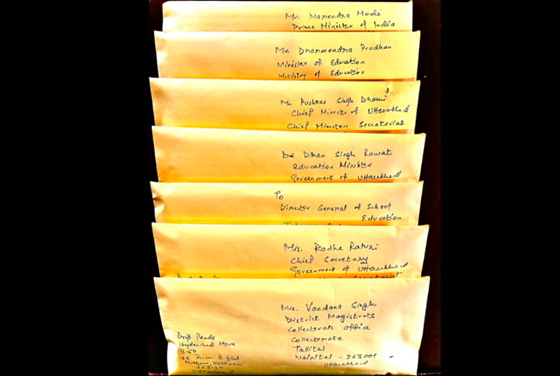 Mr. Narendra Modi
Prime Minister of India
Mr Dharmendra Pradhan
Minister of Education
Ministry of Education
Mr Pushkar Singh Dhami
Chief Minister of Uttarakhand
Chief Ministers Secretariat
Dhan Singh Rawat
Education Minister
Government of Uttarakhand
To
Director General of School
Education
Mrs. Radha Raturi
Chief Secretary
Government of Uttarakhand
Mrs. Vandana Singh
District Magistrate
Collectorate Office
Collectorate
Tallital
Nainital - 263001
Uttarakhand
Pande